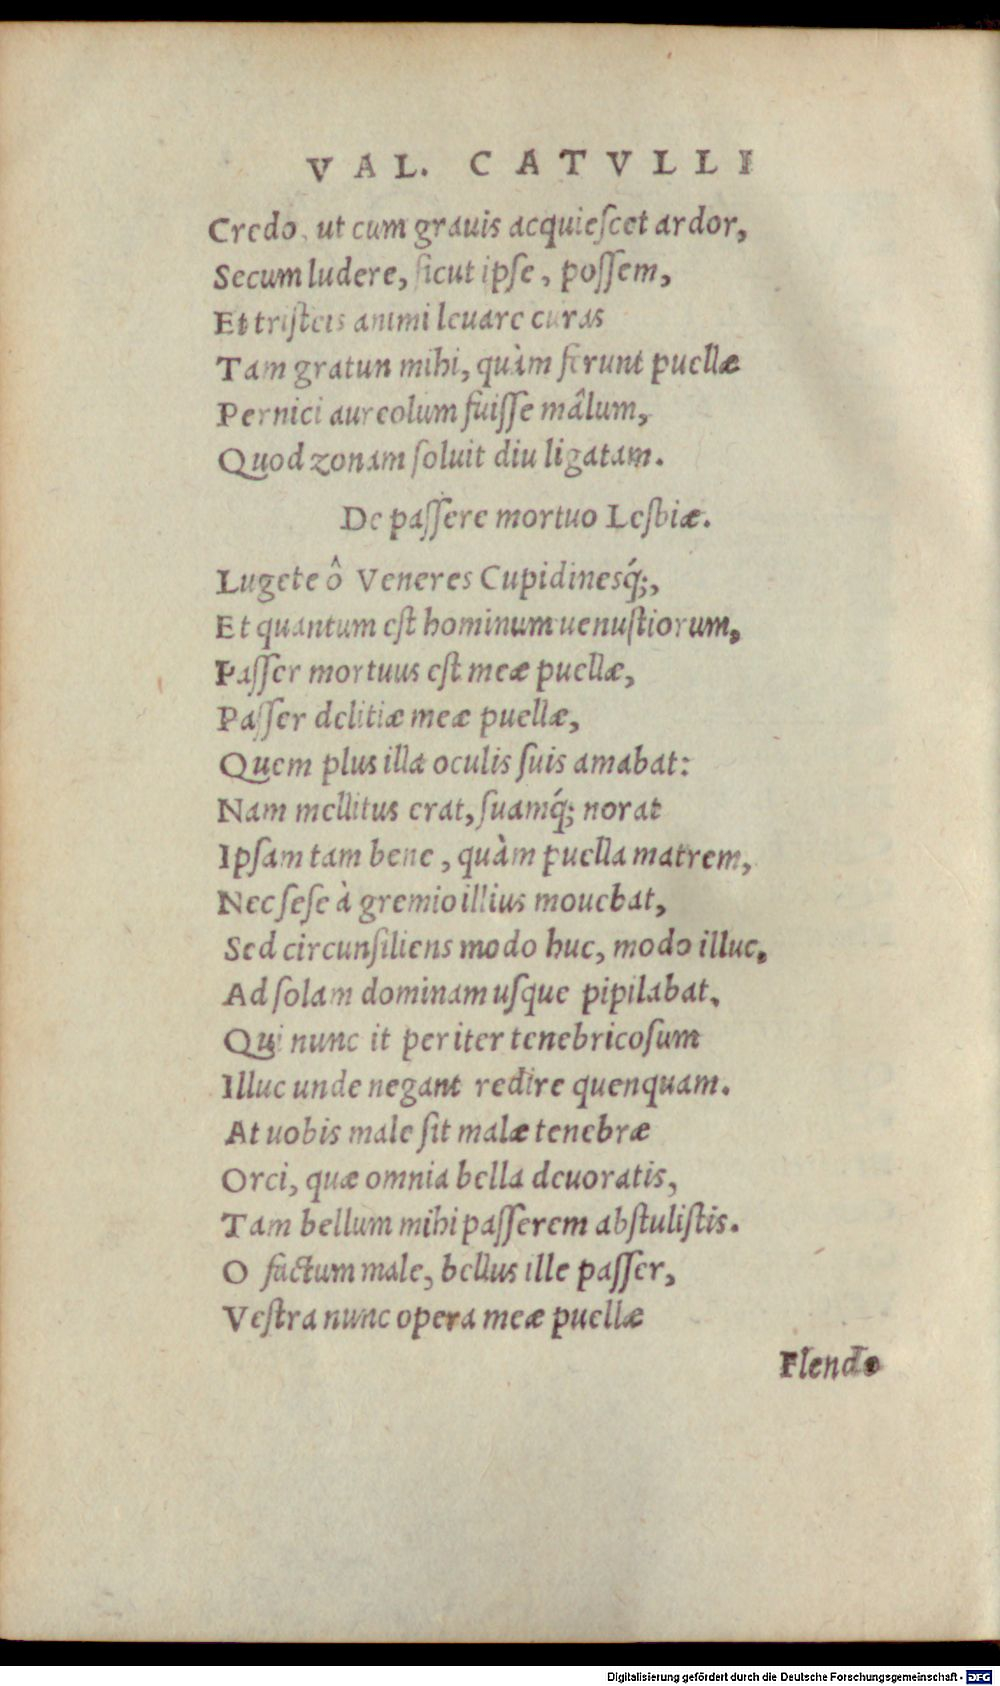 VAL. CATVLLI
Credo, ut cum grauis acquieſcet ardor,
Secum ludere, ſicut ipſe, poſſem,
Et triſteis animi leuare curas
Tam gratun mihi, quàm ferunt puellæ
Pernici aureolum fuiſſe mâlum,
Quod zonam ſoluit diu ligatam.
De paſſere mortuo Leſbiæ.
Lugete ô Veneres Cupidinesq́;,
Et quantum eſt hominum uenuſtiorum,
Paſſer mortuus eſt meæ puellæ,
Paſſer delitiæ meæ puellæ,
Quem plus illa oculis ſuis amabat:
Nam mellitus erat, ſuamq́; norat
Ipſam tam bene, quàm puella matrem,
Nec ſeſe à gremio illius mouebat,
Sed circunſiliens modo huc, modo illuc,
Ad ſolam dominam uſque pipilabat,
Qui nunc it per iter tenebricoſum
Illuc unde negant redire quenquam.
At uobis male ſit malæ tenebræ
Orci, quæ omnia bella deuoratis,
Tam bellum mihi paſſerem abſtuliſtis.
O factum male, bellus ille paſſer,
Veſtra nunc opera meæ puellæ
Flendo
Digitalisierung gefördert durch die Deutsche Forschungsgemeinschaft - DFG